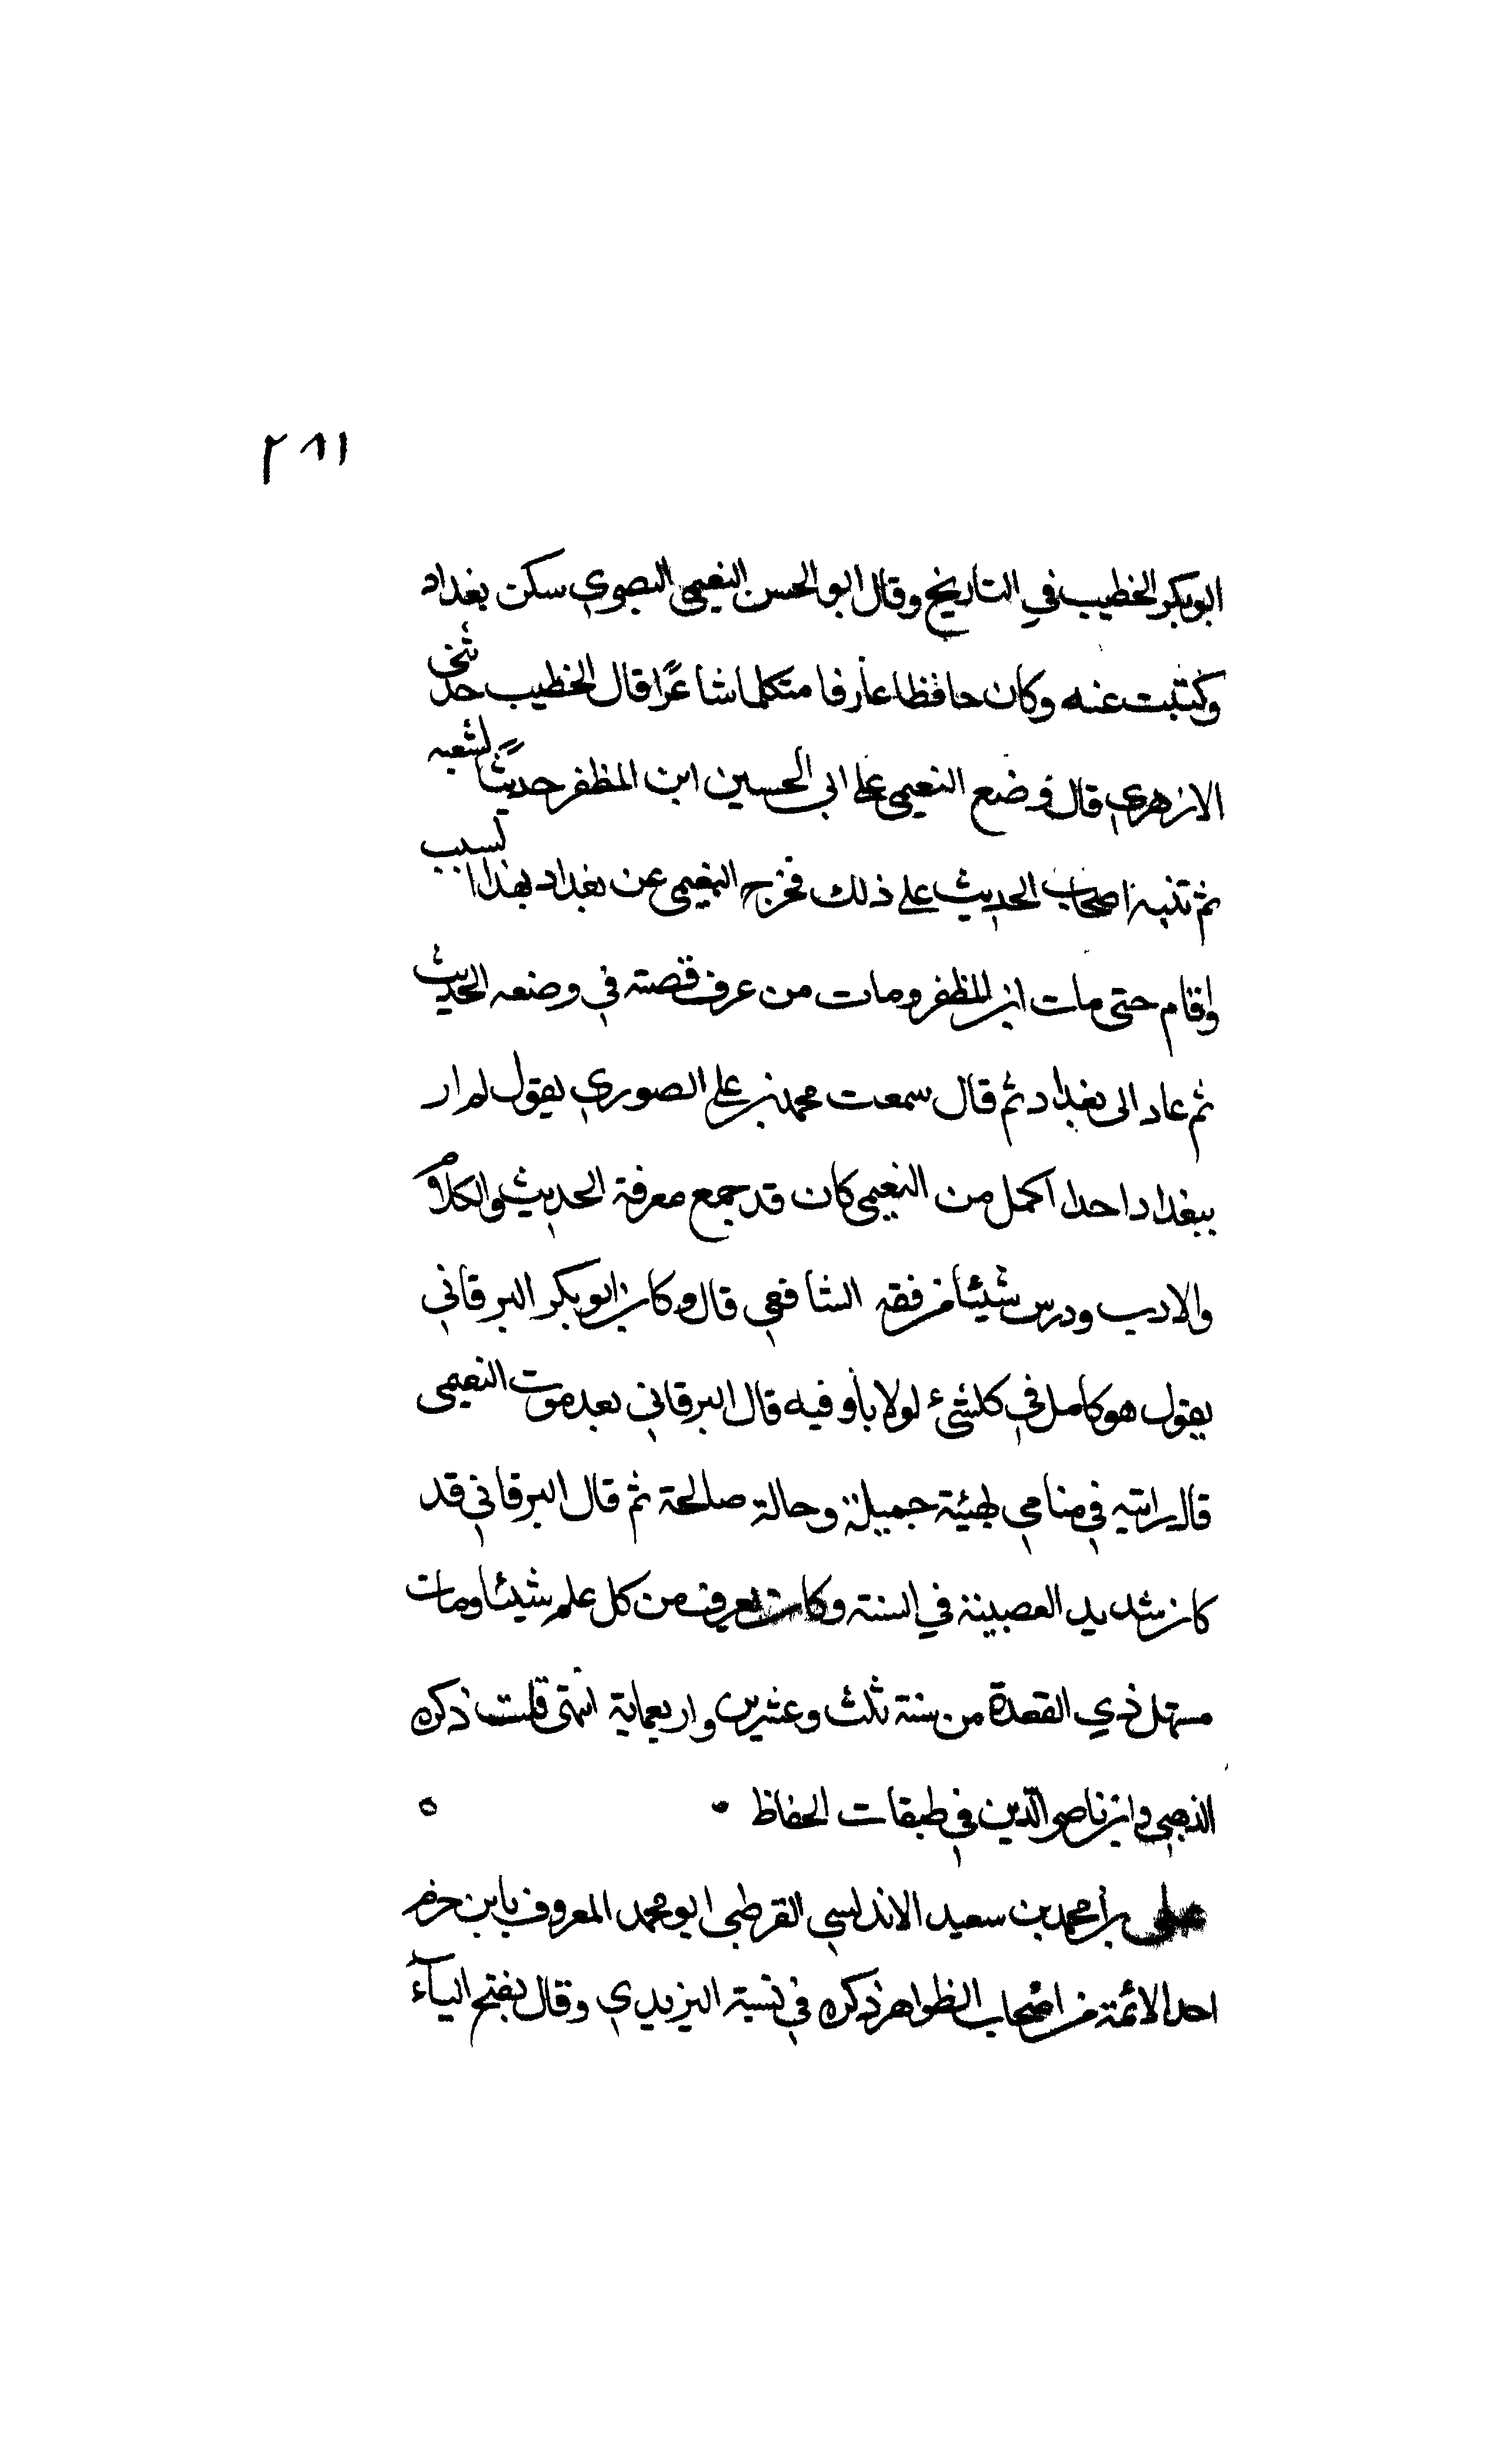 ٢٨١
ابو بكر الخطيب في التاريخ وقال ابو الحسن النعيمى البصري سكن بغداد
وكتبت عنه وكان حافظا عارفا متكلما شاعرًا قال الخطيب حدثنى
الازهري قال وضع النعيمى على ابى الحسين ابن المظفر حديثًا لشعبه
ثم تنبه اصحاب الحديث على ذلك فخرج النعيمى عن بغداد بهذا السبب
واقام حتى مات ابن المظفر ومات من عرف قصته في وضعه الحديث
ثم عاد الى بغداد ثم قال سمعت محمد بن على الصوري يقول لم ار
ببغداد احدا اكمل من النعيمى كان قد جمع معرفة الحديث والكلام
والادب ودرس شيئا من فقه الشافعي قال وكان ابو بكر البرقاني
يقول هو كامل في كلشئ لولا بأو فيه قال البرقاني بعد موت النعيمى
قال رايته في منامي بهيئة جميلة وحالة صالحة ثم قال البرقاني قد
كان شديد العصبية في السنة وكان يعرف من كل علم شيئا ومات
مستهل ذي القعدة من سنة ثلث وعشرين واربعماية انتهى قلت ذكره
الذهبي وابن ناصر الدين في طبقات الحفاظ ه
على بن محمد بن سعيد الاندلسي القرطبى ابو محمد المعروف بابن حزم
احد الائمة من اصحاب الظواهر ذكره في نسبة اليزيدي وقال بفتح اليآء